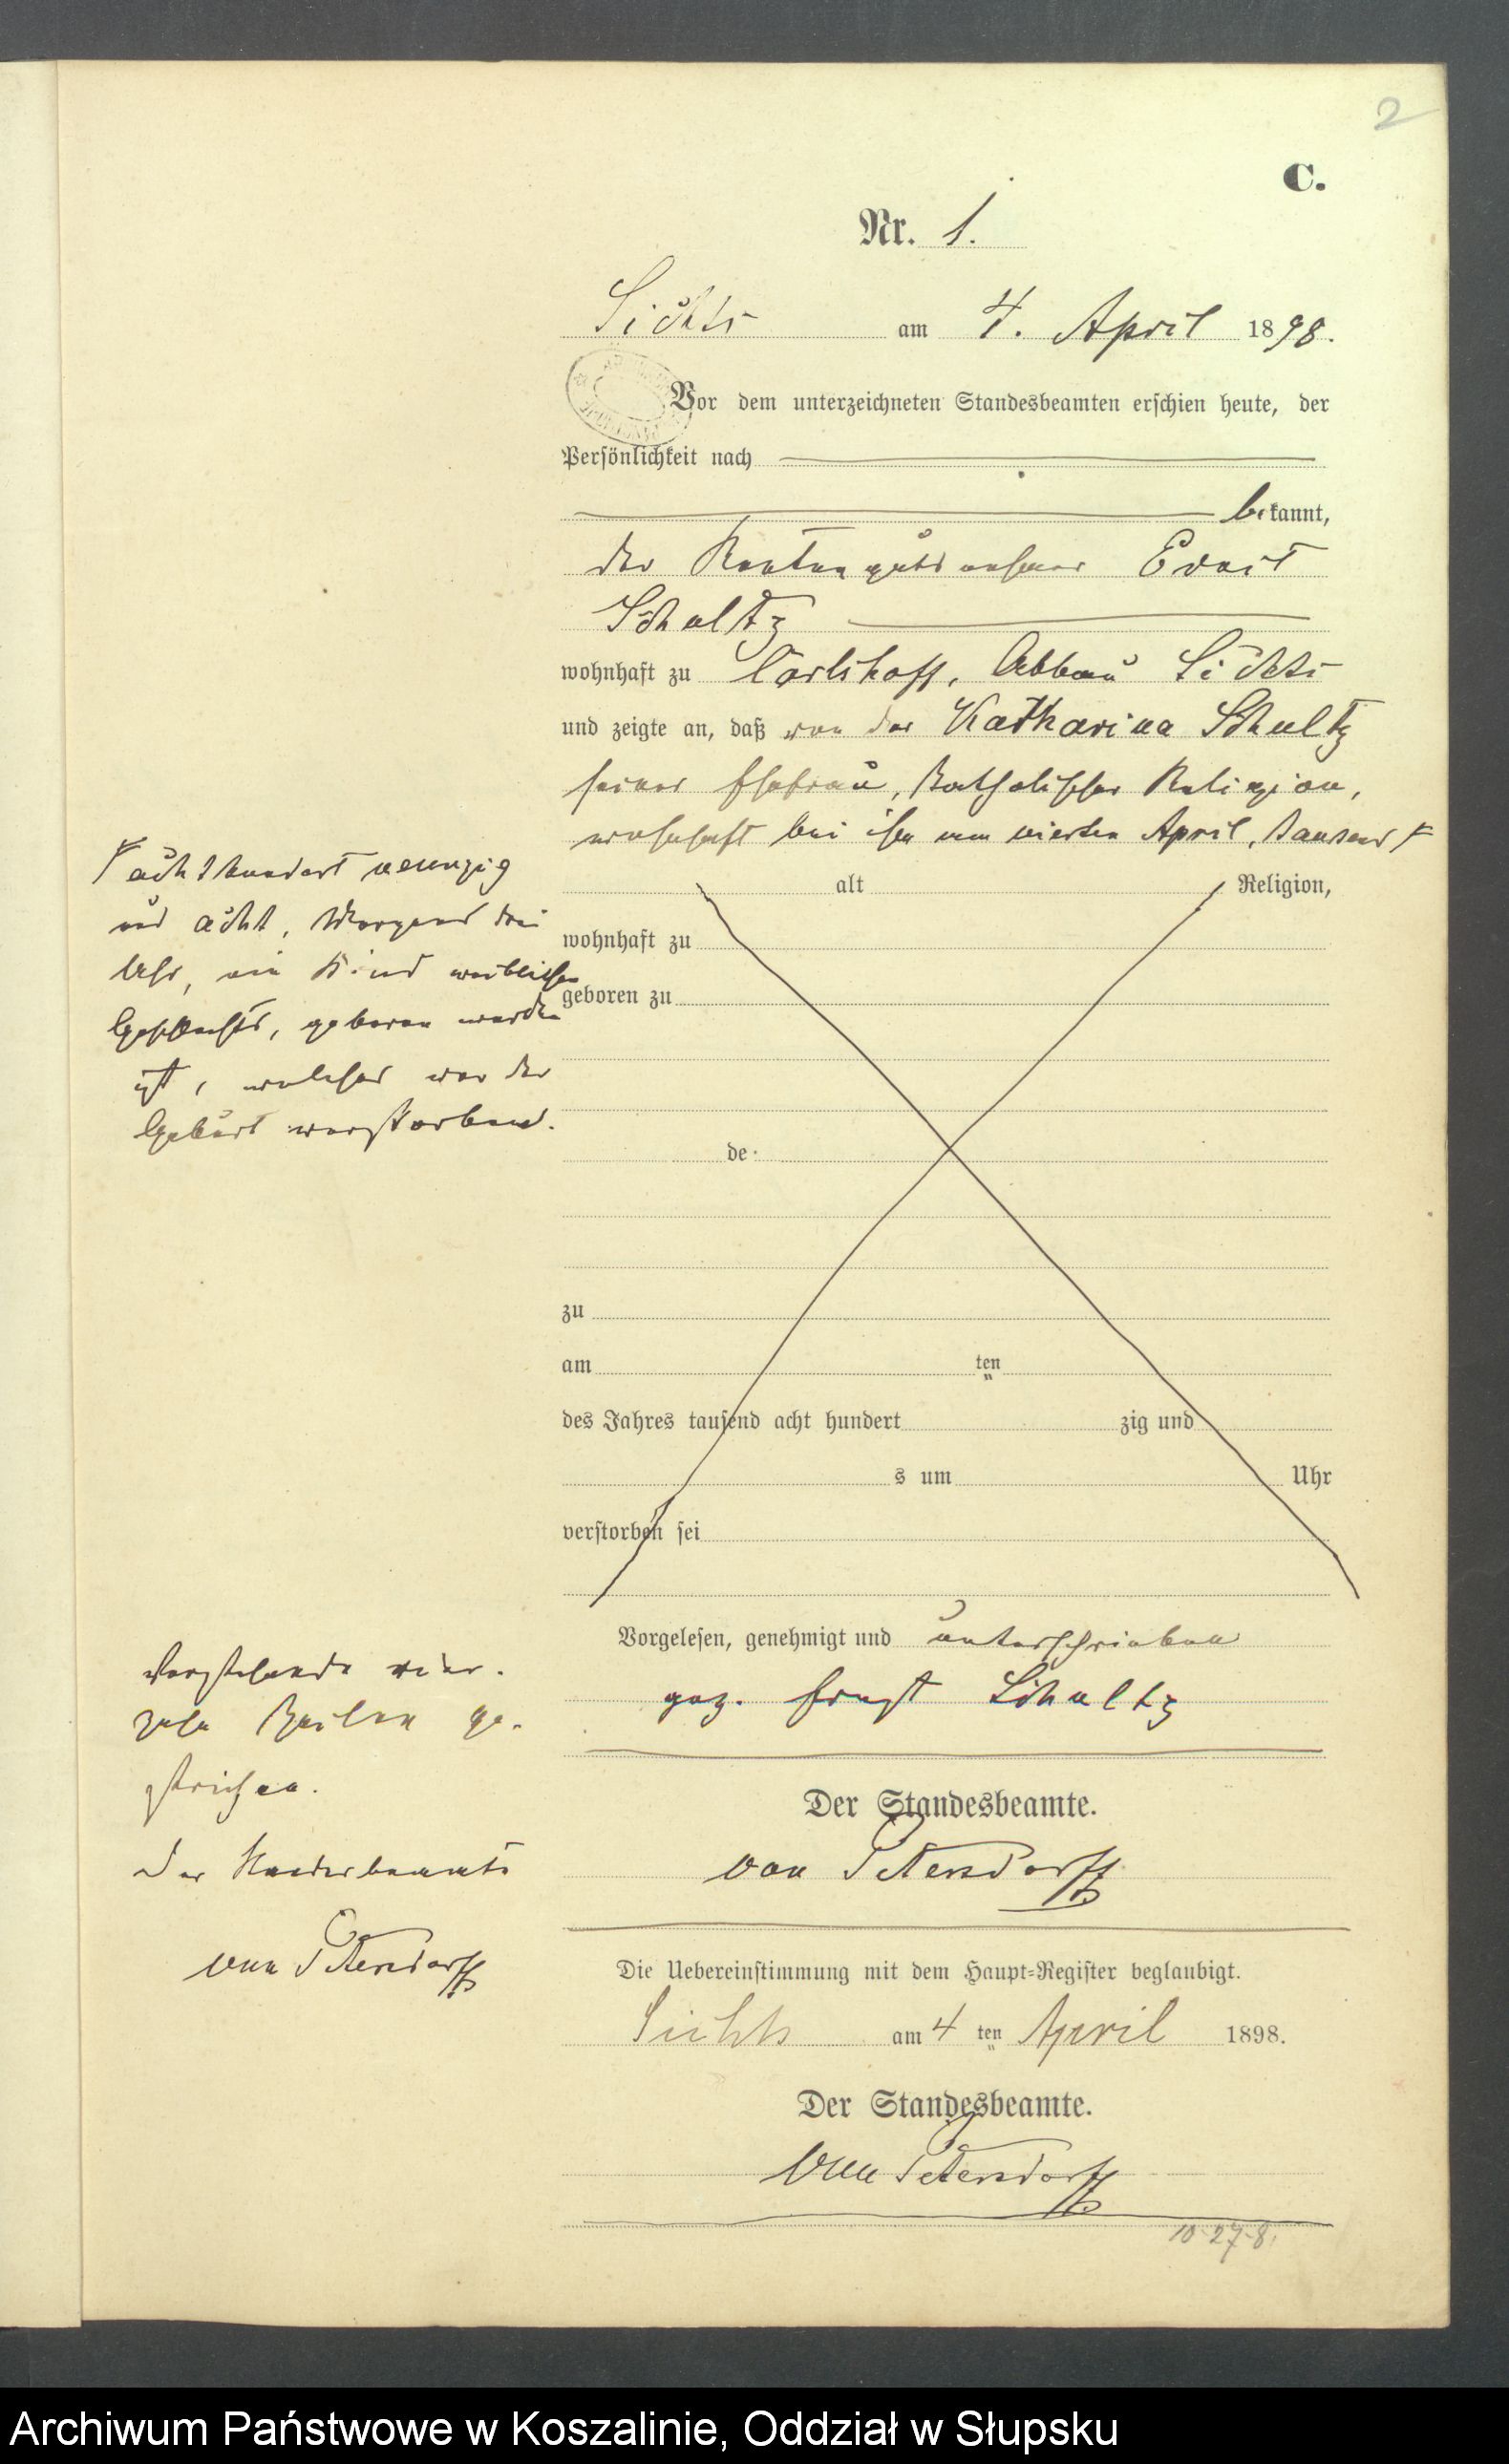 2
C.
Nr. 1.
Sichts am 4. April 1898.
Vor dem unterzeichneten Standesbeamten erschien heute, der
Persönlichkeit nach
bekannt,
der Rentengutsnehmer Ernst
Schultz
wohnhaft zu Carlshoff, Abbau Sichts
und zeigte an, daß von der Katharina Schultz
seiner Ehefrau, katholischer Religion,
wohnhaft bei ihm am vierten April, tausend
acht hundert neunzig
und acht, Morgens drei
Uhr, ein Kind weiblichen
Geschlechts, geboren worden
ist, welches vor der
Geburt verstorben.
alt Religion,
wohnhaft zu
geboren zu
de
zu
am ten
des Jahres tausend acht hundert zig und
s um Uhr
verstorben sei
Vorgelesen, genehmigt und unterschrieben
gez. Ernst Schultz
Vorstehende vier-
zehn Zeilen ge-
strichen.
Der Standesbeamte
von Petersdorff
Der Standesbeamte.
von Petersdorff
Die Uebereinstimmung mit dem Haupt-Register beglaubigt.
Sichts am 4 ten April 1898.
Der Standesbeamte.
von Petersdorff
10-27-8.
Archiwum Państwowe w Koszalinie, Oddział w Słupsku